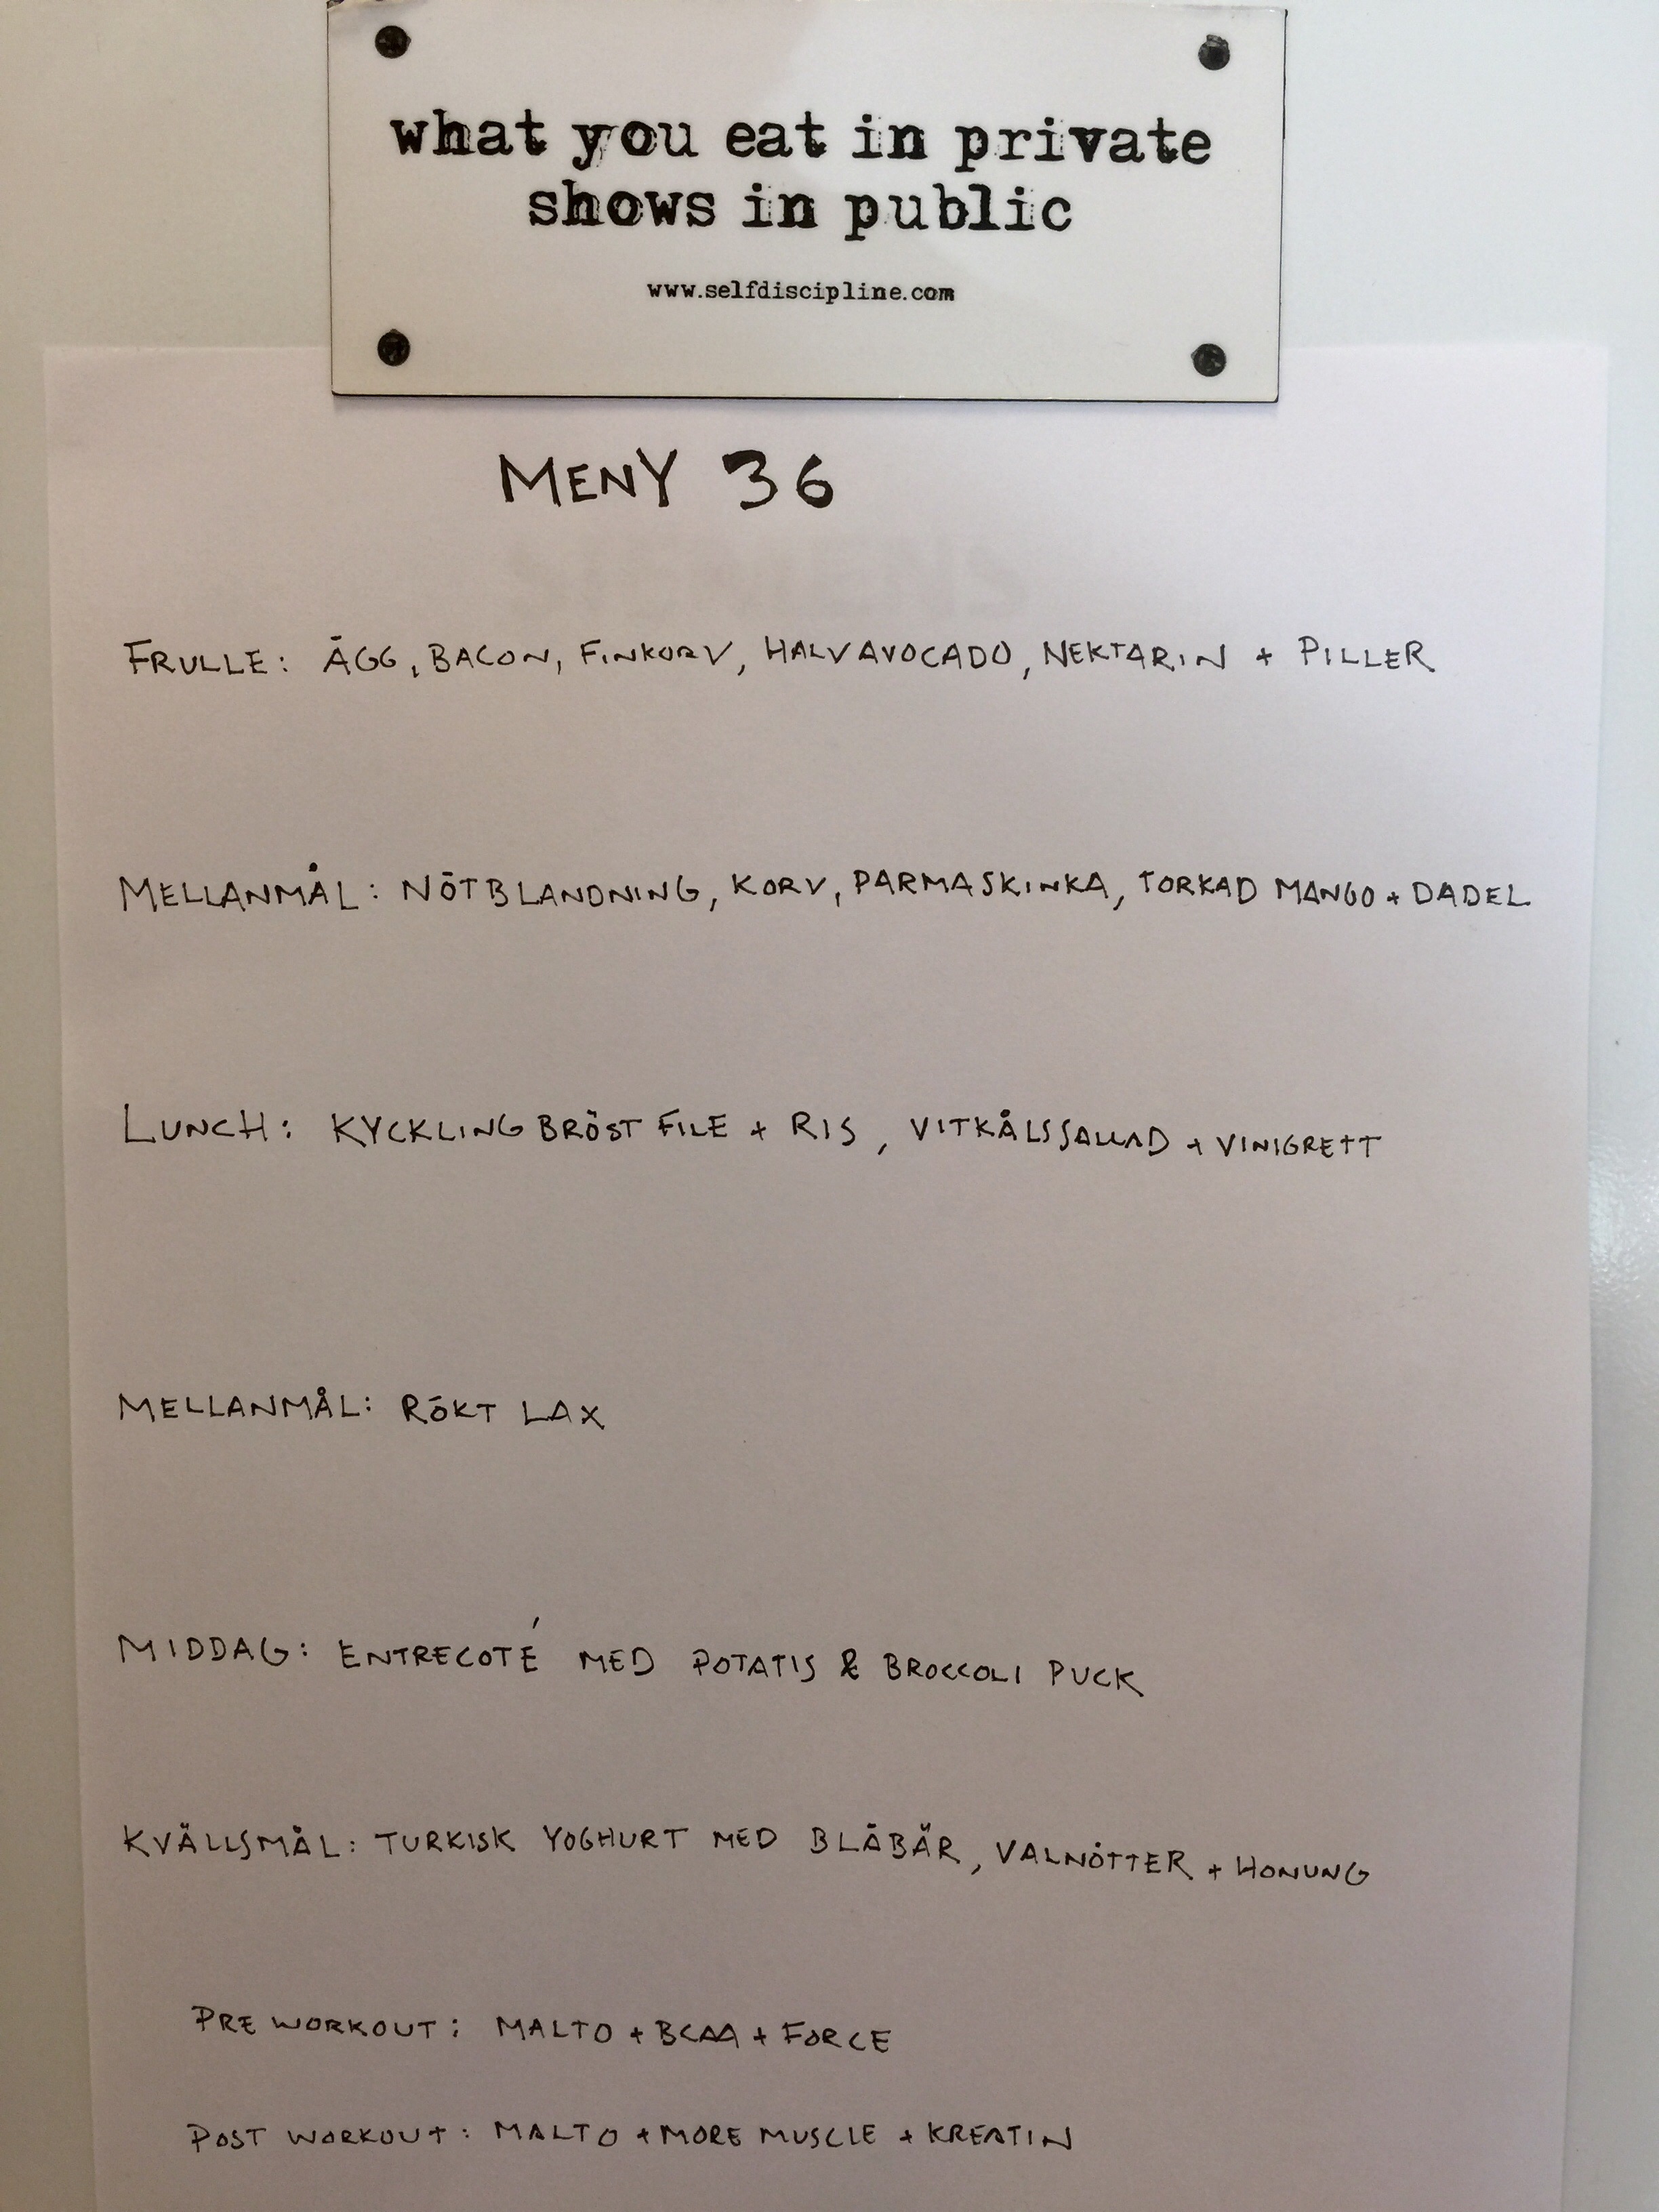 what you eat in private
shows in public
www.selfdiscipline.com
MENY 36
FRULLE: ÄGG, BACON, FINKORV, HALV AVOCADO, NEKTARIN + PILLER
MELLANMÅL: NÖTBLANDNING, KORV, PARMASKINKA, TORKAD MANGO + DADEL
LUNCH: KYCKLINGBRÖSTFILE + RIS, VITKÅLSSALLAD + VINIGRETT
MELLANMÅL: RÖKT LAX
MIDDAG: ENTRECOTÉ MED POTATIS & BROCCOLI PUCK
KVÄLLSMÅL: TURKISK YOGHURT MED BLÅBÄR, VALNÖTTER + HONUNG
PRE WORKOUT: MALTO + BCAA + FORCE
POST WORKOUT: MALTO + MORE MUSCLE + KREATIN